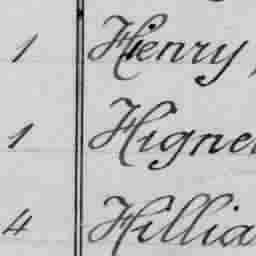 1 Henry,
1 Higne
4 Hillia